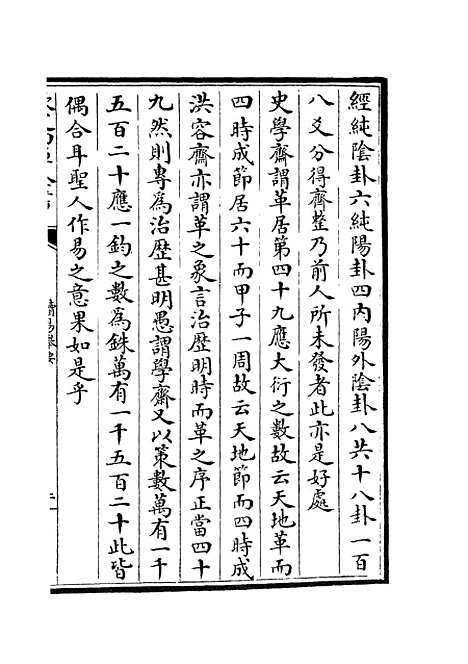 經純陰卦六純陽卦四内陽外陰卦八共十八卦一百
八爻分得齊整乃前人所未發者此亦是好處
史學齋謂革居第四十九應大衍之數故云天地革而
四時成節居六十而甲子一周故云天地節而四時成
洪容齋亦謂革之象言治歷明時而革之序正當四十
九然則專為治歷甚明愚謂學齋又以策數萬有一千
五百二十應一鈞之數為銖萬有一千五百二十此皆
偶合耳聖人作易之意果如是乎
讀易舉要